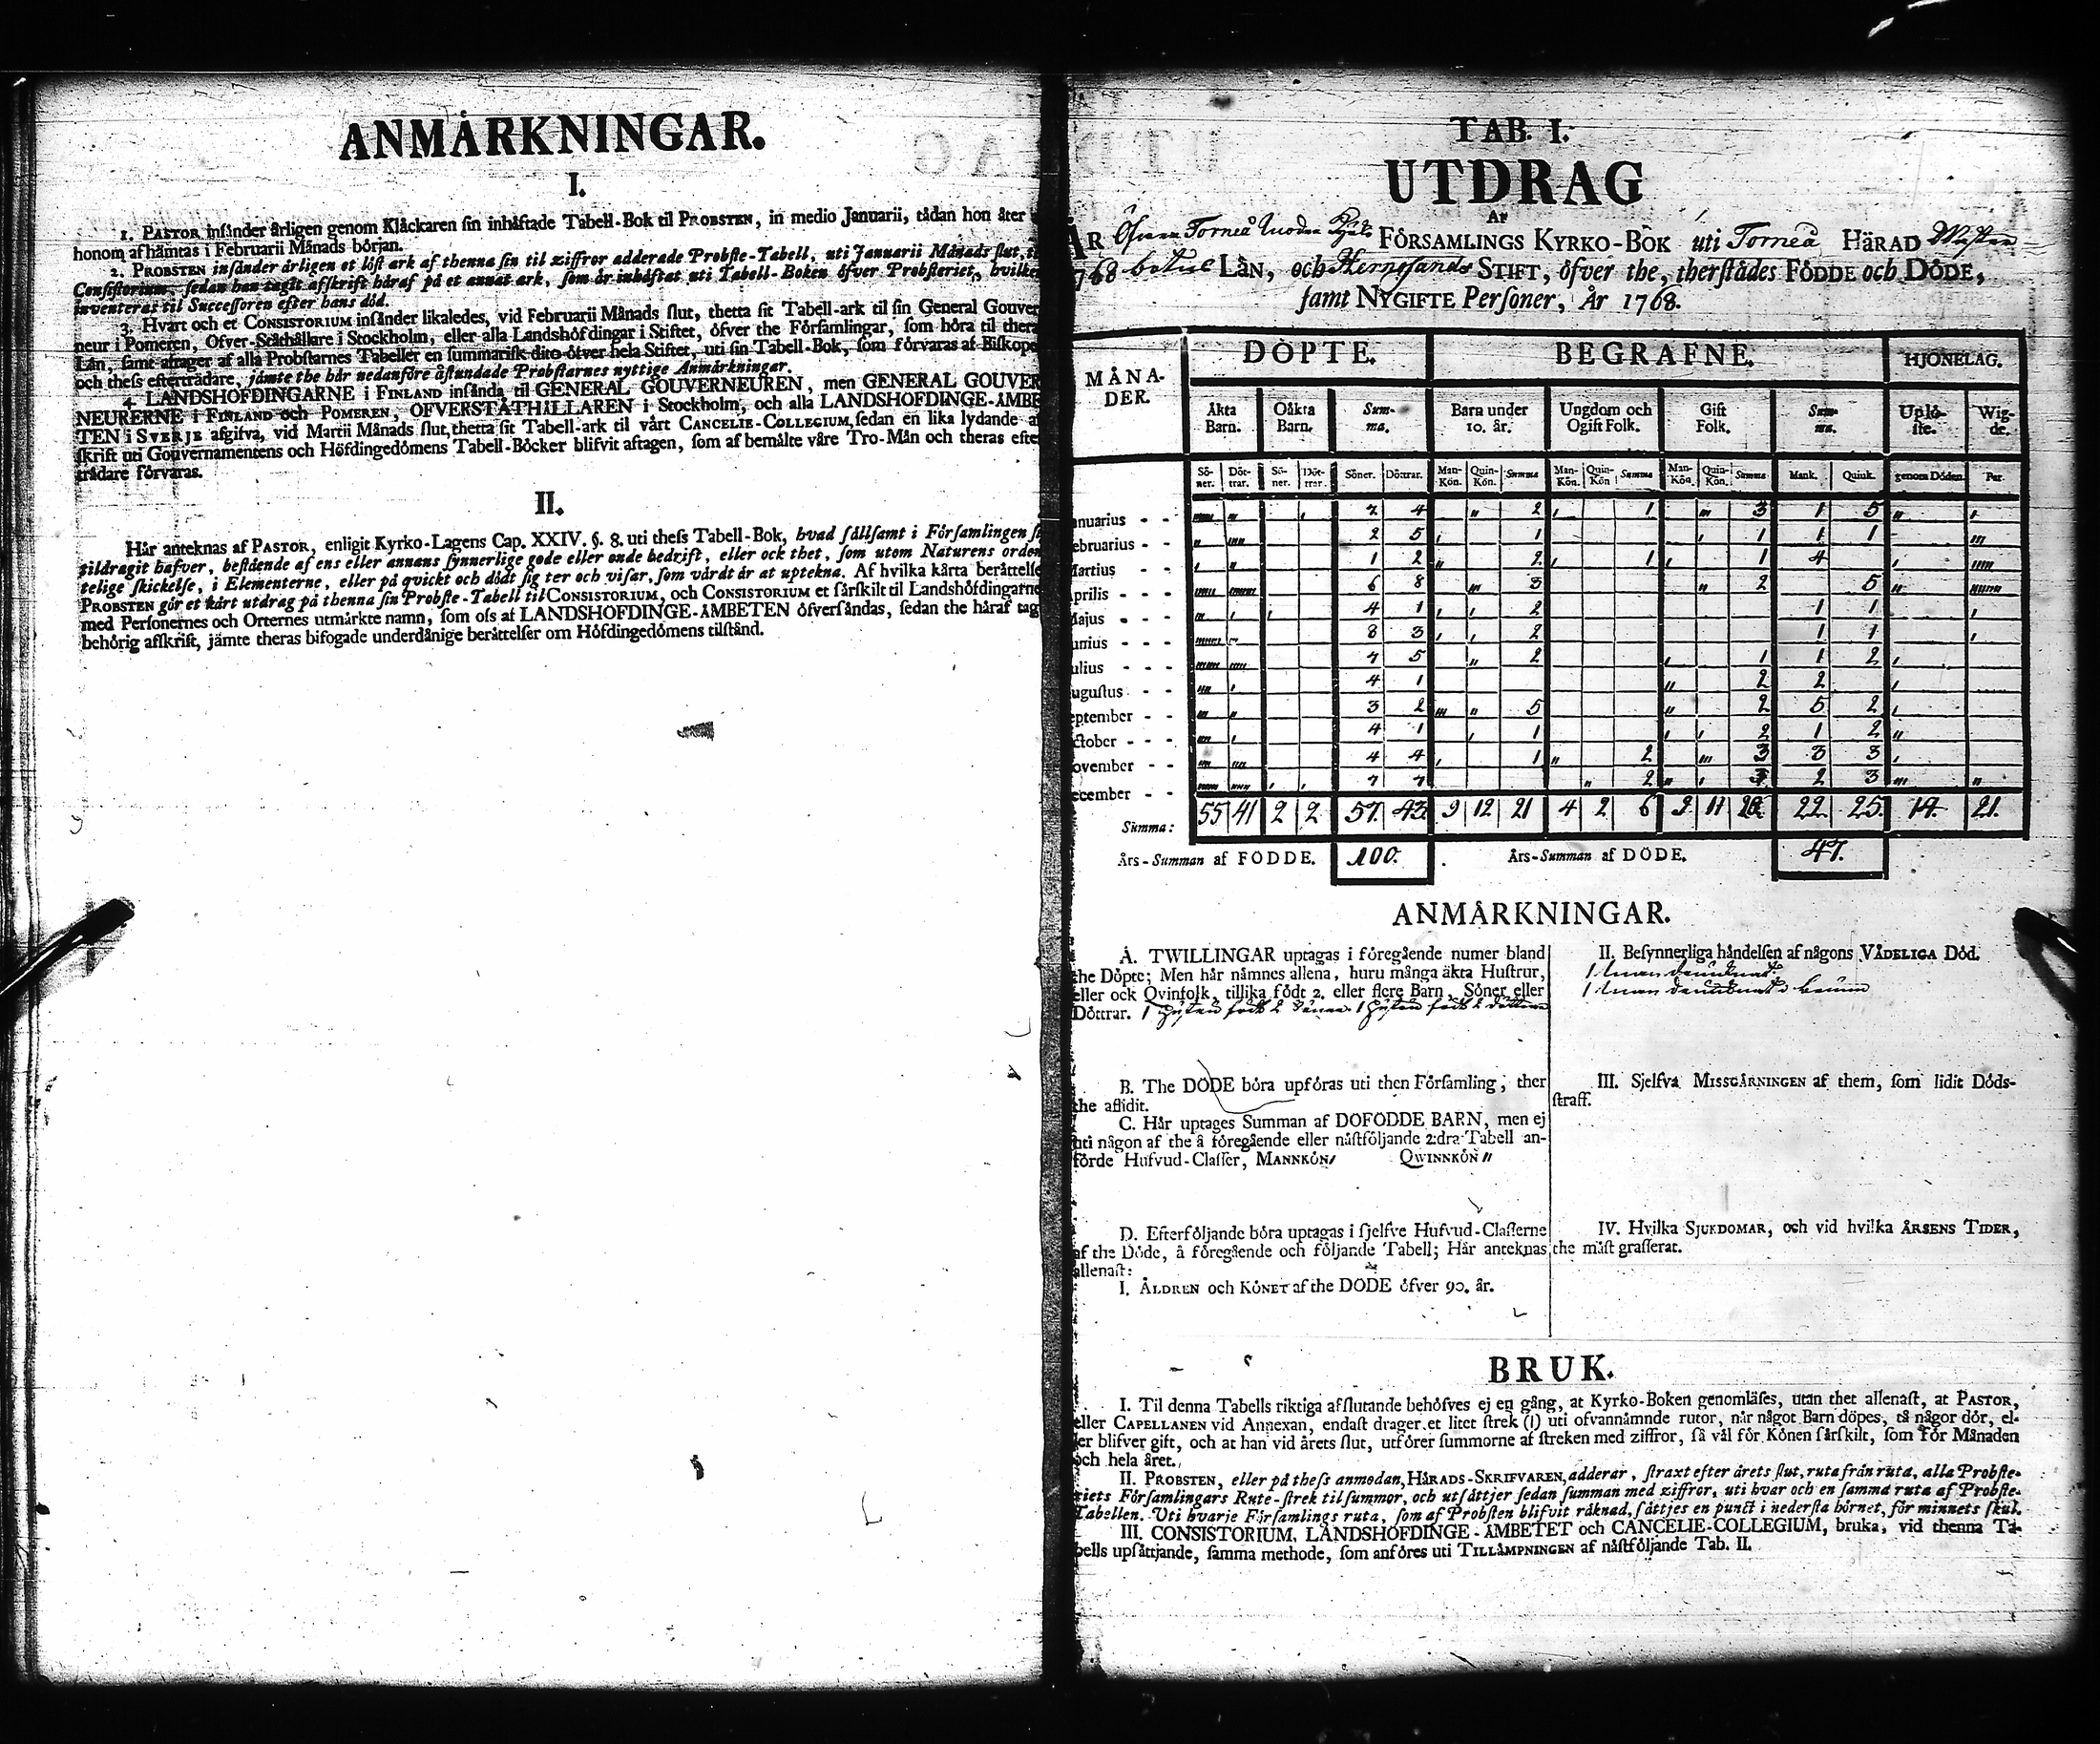 ANMÅRKNINGAR.
I.
1. PASTOR insånder årligen genom Klåckaren sin inhåftade Tabell-Bok til PROBSTEN, in medio Januarii, tådan hon åter
honom afhåmtas i Februarii Månads början.
2. PROBSTEN insånder årligen et löst ark af thenna sin til ziffror adderade Probste-Tabell, uti Januarii Månads slut,
Consistorium, sedan han tagit afskrift håraf på et annat ark, som år inhåftat uti Tabell-Boken öfver Probsteriet, hvilken
inventeras til Successoren efter hans död.
3. Hvart och et CONSISTORIUM insånder likaledes, vid Februarii Månads slut, thetta sit Tabell-ark til sin General Gouver
neur i Pomeren, Öfver-Ståthållare i Stockholm, eller alla Landshöfdingar i Stiftet, öfver the Församlingar, som höra til thera
Lån, samt aftager af alla Probstarnes Tabeller en summarisk dito öfver hela Stiftet, uti sin Tabell-Bok, som förvaras af Biskope
och thess eftertrådare, jåmte the hår nedanföre åstundade Probstarnes nyttige Anmårkningar.
4. LANDSHÖFDINGARNE i FINLAND insånda til GENERAL GOUVERNEUREN, men GENERAL GOUVER
NEURERNE i FINLAND och POMEREN, ÖFVERSTÅTHILLAREN i Stockholm, och alla LANDSHÖFDINGE-ÅMBE
TEN i SVERJE afgifva, vid Martii Månads slut, thetta sit Tabell-ark til vårt CANCELIE-COLLEGIUM, sedan en lika lydande a
skrift uti Gouvernamentens och Höfdingedömens Tabell-Böcker blifvit aftagen, som af bemålte våre Tro-Mån och theras efte
trådare förvaras.
II.
Hår anteknas af PASTOR, enligit Kyrko-Lagens Cap. XXIV. §. 8. uti thess Tabell-Bok, hvad sållsamt i Församlingen
tildragit hafver, bestående af ens eller annans synnerlige gode eller onde bedrift, eller ock thet, som utom Naturens orden
telige skickelse, i Elementerne, eller på qvickt och dödt sig ter och visar, som vårdt år at uptekna. Af hvilka kårta beråttelse
PROBSTEN gör et kårt utdrag på thenna sin Probste-Tabell til CONSISTORIUM, och CONSISTORIUM et sårskilt til Landshöfdingarne
med Personernes och Orternes utmårkte namn, som oss af LANDSHÖFDINGE-ÅMBETEN öfversåndas, sedan the håraf tag
behörig afskrift, jåmte theras bifogade underdånige beråttelser om Höfdingedömens tilstånd.
TAB. I.
UTDRAG
AF
ÅR Öfver Torneå FÖRSAMLINGS KYRKO-BOK uti Torneå HÄRAD Wester=
768 botns LÅN, och Hernösands STIFT, öfver the, therstådes FÖDDE och DÖDE,
samt NYGIFTE Personer, År 1768.
MÅNA-
DER.
DÖPTE. BEGRAFNE. HJONELAG.
Åkta Barn. Oåkta Barn. Summa. Barn under 10. år. Ungdom och Ogift Folk. Gift Folk. Summa. Uplöste. Wigde.
Söner. Döttrar. Söner. Döttrar. Söner. Döttrar. Man-Kön. Quin-Kön. Summa Man-Kön. Quin-Kön Summa Man-Kön. Quin-Kön. Summa Mank. Quink. genom Döden Par.
anuarius - - 7 4 2 1 3 1 5
ebruarius - - 2 5 1 1 1 1
artius - - - 1 2 2 1 1 4
prilis - - - 6 8 3 2 5
ajus - - - 4 1 2 1 1
unius - - - 8 3 2 1 1
ulius - - - 7 5 2 1 1 2
ugustus - - 4 1 2 2
eptember - - 3 2 5 2 5 2
ctober - - - 4 1 1 2 1 2
ovember - - 4 4 1 2 3 3 3
ecember - - 7 7 2 3 2 3
Summa: 55 41 2 2 57. 43. 9 12 21 4 2 6 9 11 20 22. 25. 14. 21.
Års-Summan af FÖDDE. 100. Års-Summan af DÖDE. 47.
ANMÅRKNINGAR.
A. TWILLINGAR uptagas i föregående numer bland
the Döpte; Men hår nåmnes allena, huru många äkta Hustrur,
eller ock Qvinfolk, tillika födt 2. eller flere Barn, Söner eller
Döttrar. 1 Hustru födt 2 Söner. 1 Hustru födt 2 döttrar
B. The DÖDE böra upföras uti then Församling, ther
the aflidit.
C. Hår uptages Summan af DÖFÖDDE BARN, men ej
uti någon af the å föregående eller nåstföljande 2:dra Tabell an-
förde Hufvud-Classer, MANNKÖN / QWINNKÖN //
D. Efterföljande böra uptagas i sjelfve Hufvud-Classerne
af the Döde, å föregående och följande Tabell; Hår anteknas
allenast:
I. ÅLDREN och KÖNET af the DÖDE öfver 90. år.
II. Besynnerliga håndelsen af någons VÅDELIGA Död.
1 man
1 man
III. Sjelfva MISSGÅRNINGEN af them, som lidit Döds-
straff.
IV. Hvilka SJUKDOMAR, och vid hvilka ÅRSENS TIDER,
the måst grasserat.
BRUK.
I. Til denna Tabells riktiga afslutande behöfves ej en gång, at Kyrko-Boken genomlåses, utan thet allenast, at PASTOR,
eller CAPELLANEN vid Annexan, endast drager et litet strek (I) uti ofvannåmnde rutor, når något Barn döpes, tå någor dör, el-
er blifver gift, och at han vid årets slut, utförer summorne af streken med ziffror, så vål för Könen sårskilt, som för Månaden
och hela året.
II. PROBSTEN, eller på thess anmodan, HÅRADS-SKRIFVAREN, adderar, straxt efter årets slut, ruta från ruta, alla Probste-
riets Församlingars Rute-strek til summor, och utsåttjer sedan summan med ziffror, uti hvar och en samma ruta af Probste-
Tabellen. Uti hvarje Församlings ruta, som af Probsten blifvit råknad, såttjes en punct i nedersta hörnet, för minnets skul.
III. CONSISTORIUM, LANDSHÖFDINGE-ÅMBETET och CANCELIE-COLLEGIUM, bruka, vid thenna Ta-
bells upsåttjande, samma methode, som anföres uti TILLÅMPNINGEN af nåstföljande Tab. II.